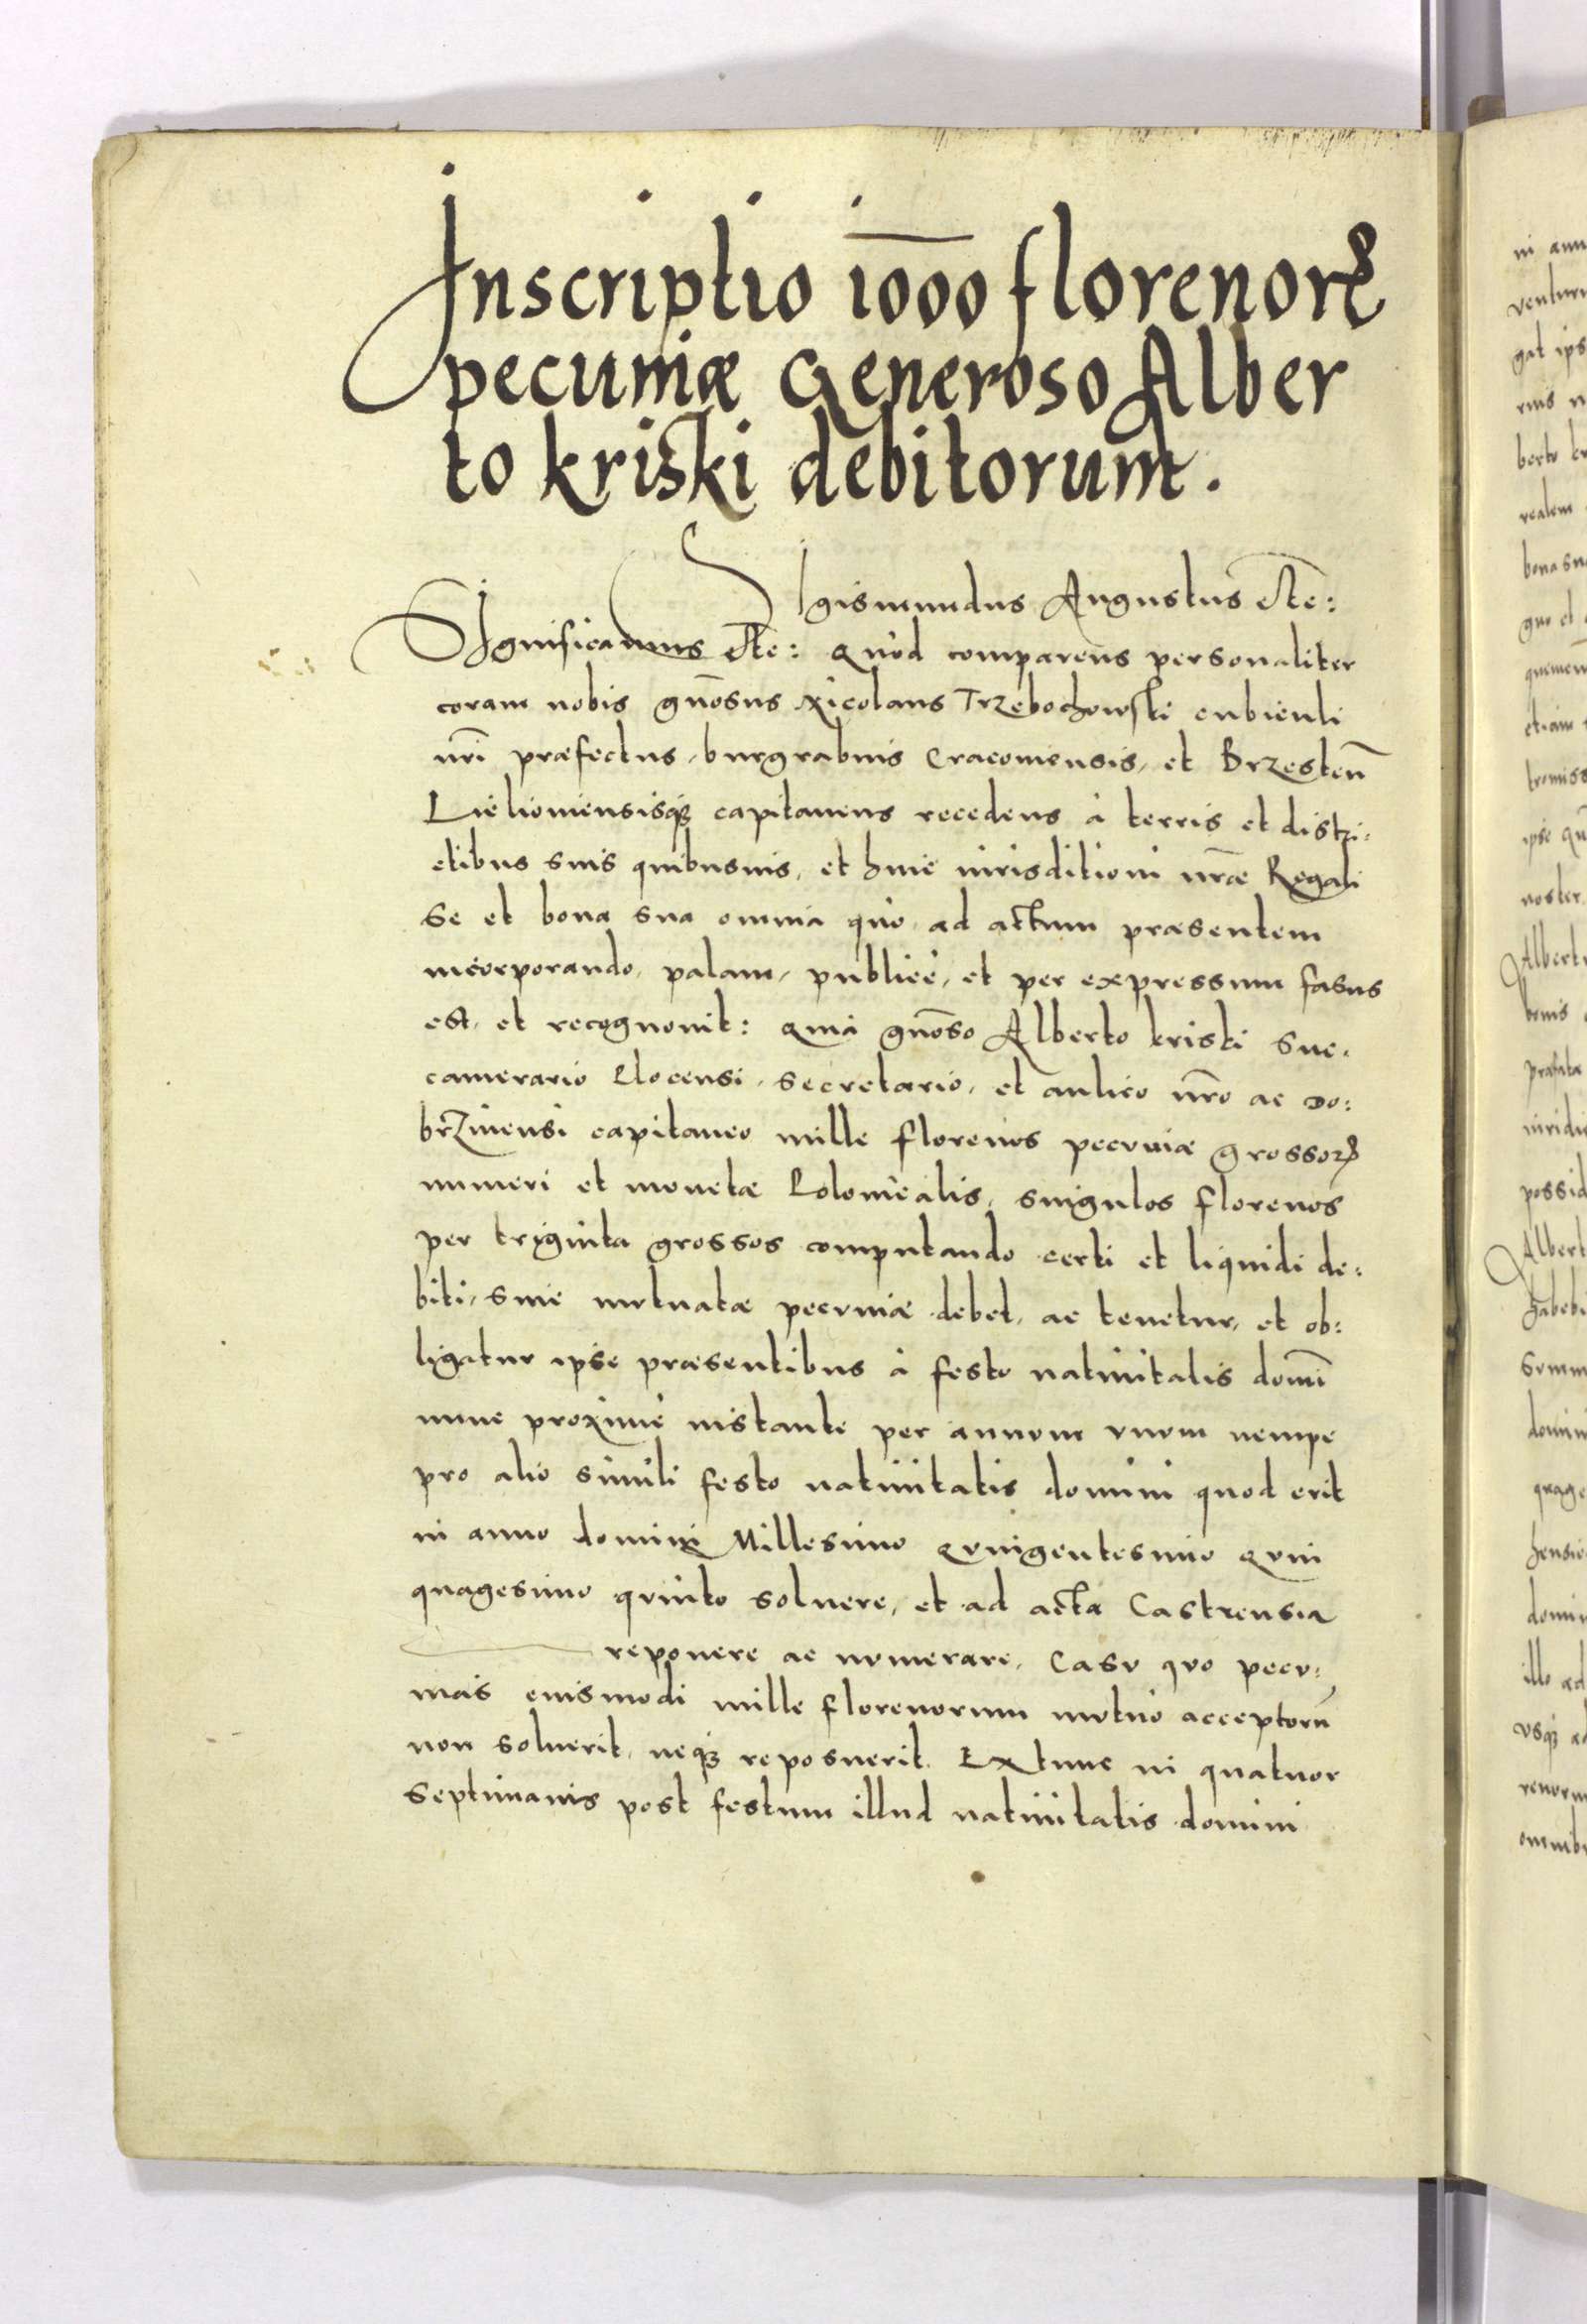 Inscriptio 1000 florenorꝝ
pecuniæ Generoso Alber
to kriski debitorum.
Sigismundus Augustus etc:
Significamus etc: Quod comparens personaliter
coram nobis gn̄osus Nicolaus Trzebochowski cubiculi
nr̄i præfectus, burgrabius Cracoviensis, et Brzesten̄
capitaneus recedens à terris et distri:
ctibus suis quibusvis, et huic iurisditioni nr̄æ Regali
se et bona sua omnia quo ad actum præsentem
incorporando, palam, publicè, et per expressum fasus
est, et recognovit: Quia gn̄oso Alberto kriski suc:
camerario Plocensi, Secretario, et aulico nr̄o ac Do:
brzinensi capitaneo mille florenos pecuniæ grossorꝝ
numeri et monetæ Polonicalis, singulos florenos
per triginta grossos computando certi et liquidi de:
biti, sive mutuatæ pecuniæ debet, ac tenetur, et ob:
ligatur ipse præsentibus à festo nativitatis domī
nunc proximè instante per annum unum nempe
pro alio simili festo nativitatis domini quod erit
in anno domini Millesimo Quingentesimo Quin
quagesimo quinto solvere, et ad acta Castrensia
reponere ac numerare, Casu quo pecu:
nias eiusmodi mille florenorum mutuo acceptorū
non solverit, neqꝫ reposuerit. Extunc in quatuor
septimanis post festum illud nativitatis domini